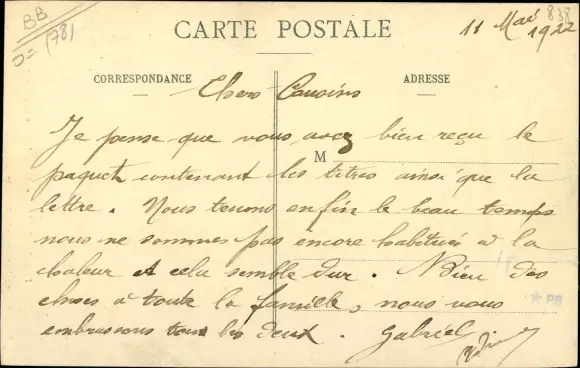 BB
D= 1781
838
CARTE POSTALE
11 Mai
1922
CORRESPONDANCE
ADRESSE
Chers Cousins
Je pense que vous avez bien reçu le
M
paquet contenant les titres ainsi que la
lettre. Nous tenons enfin le beau temps
nous ne sommes pas encore habitués à la
chaleur et cela semble dur. Bien des
choses à toute la famille, nous vous
PB
embrassons tous les deux. Gabriel